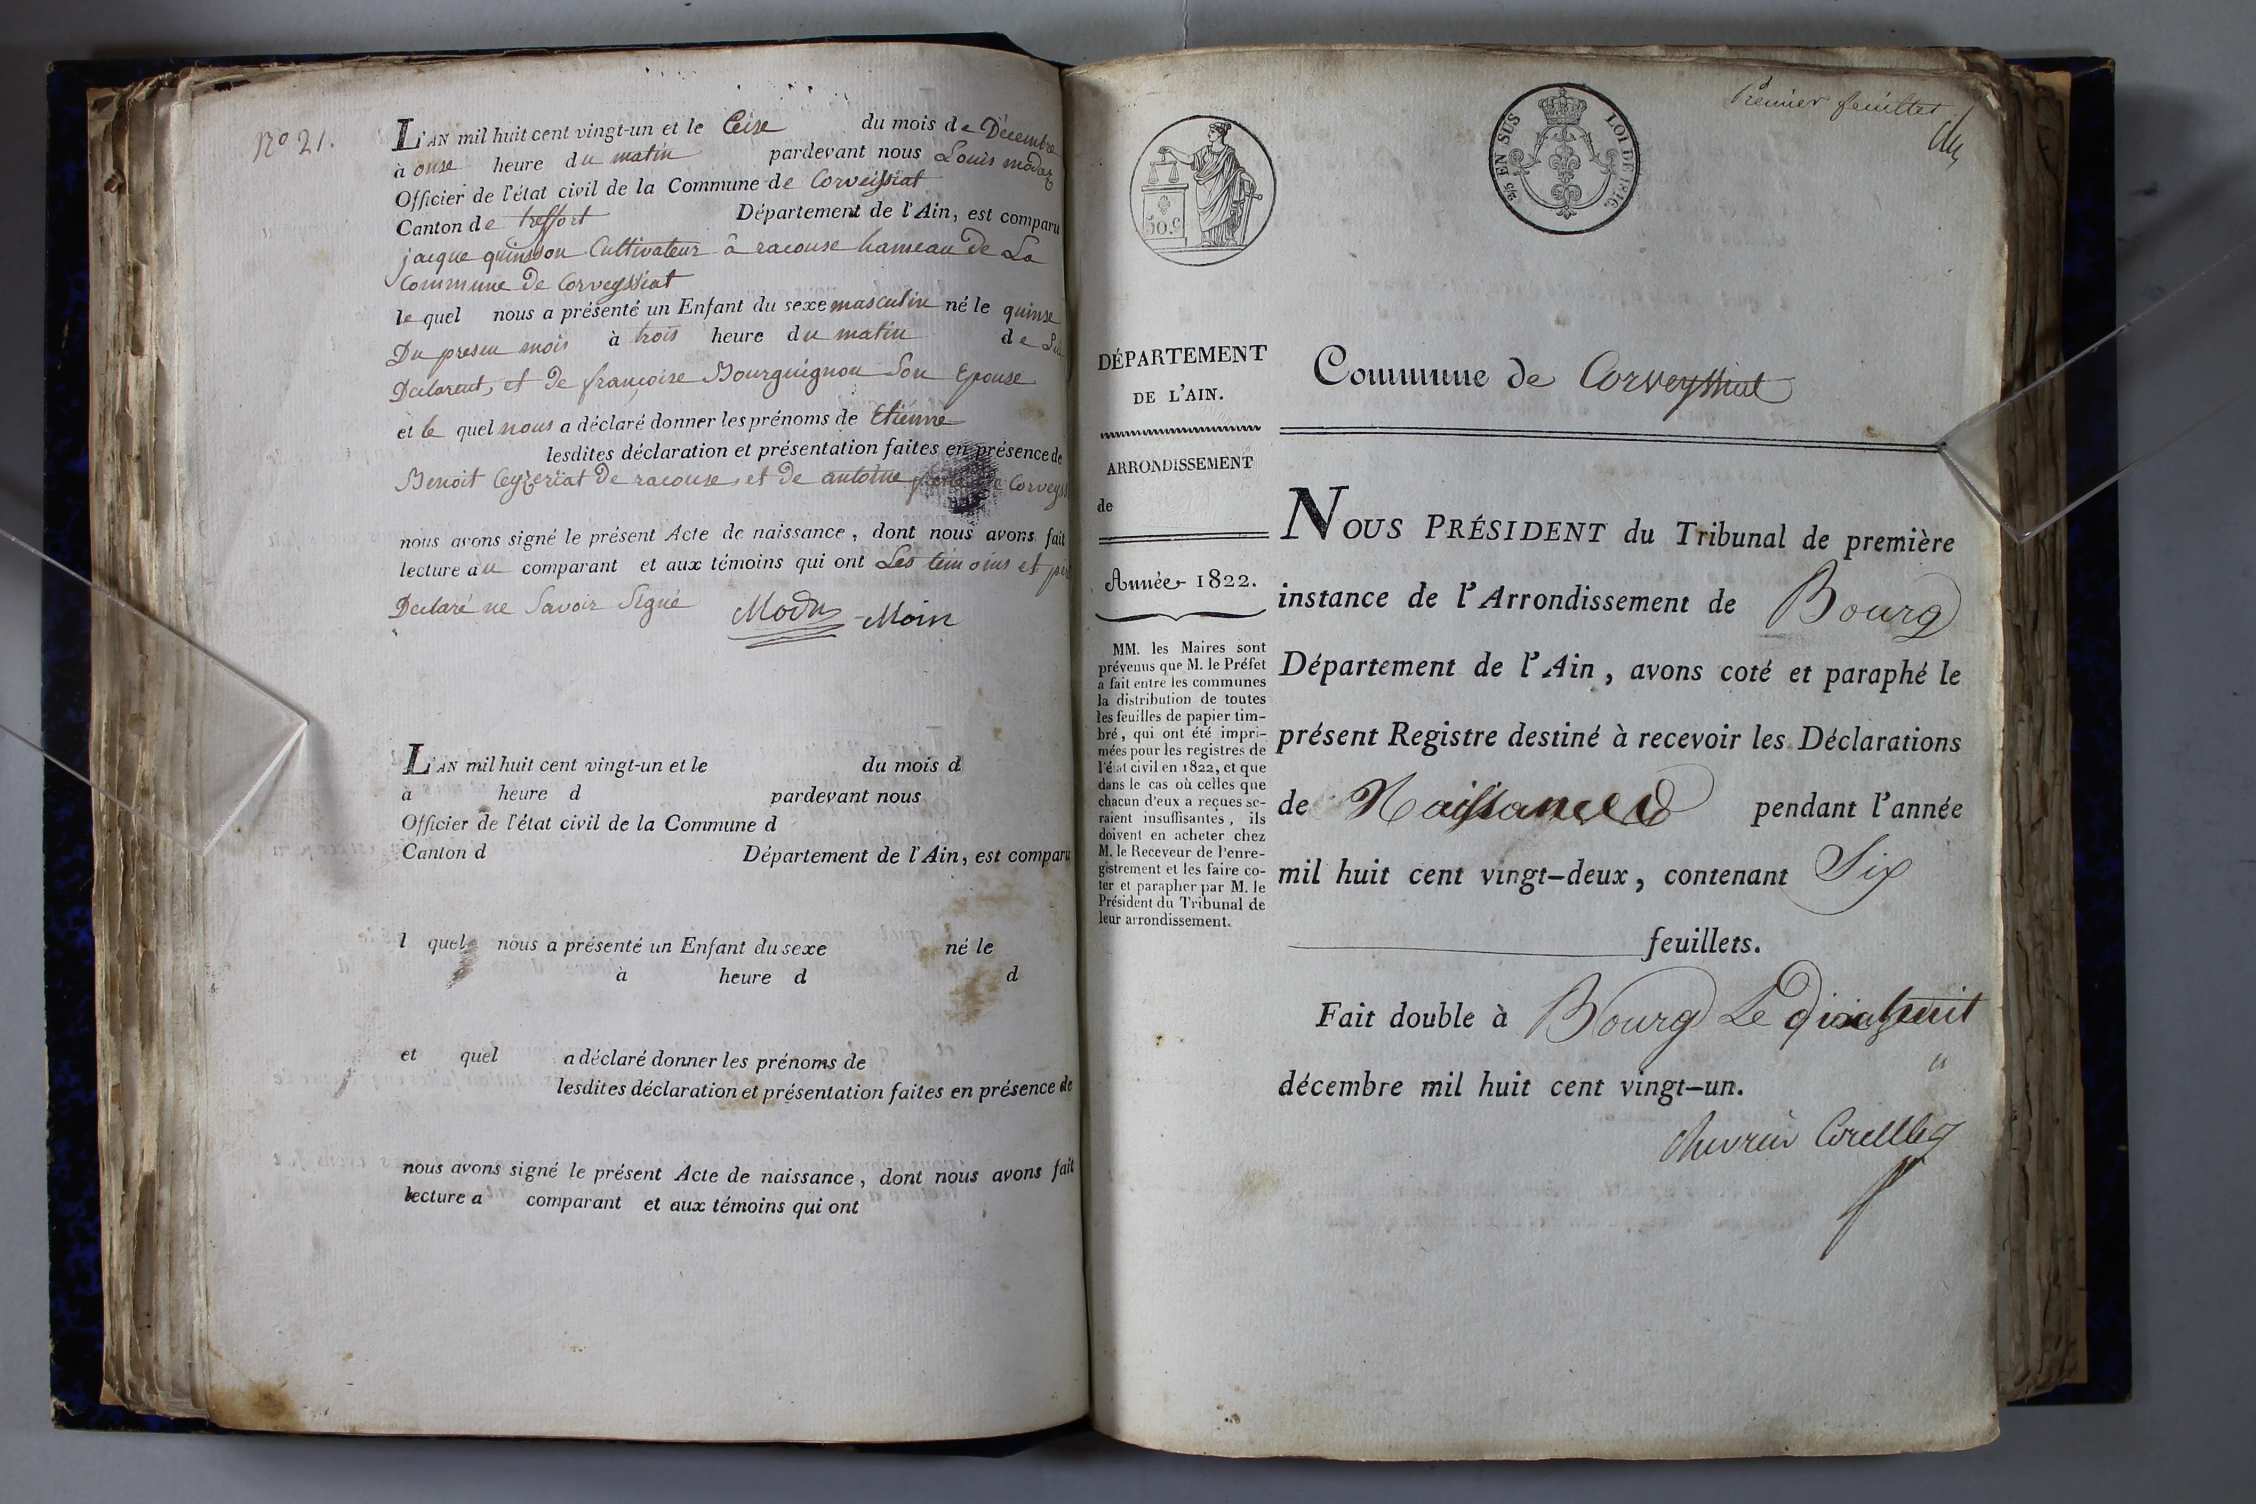 No 21.
L'AN mil huit cent vingt-un et le Ceise du mois de Décembre
à onse heure du matin pardevant nous Louis modas
Officier de l'état civil de la Commune de Corveissiat
Canton de treffort Département de l'Ain, est comparu
jacque quinson Cultivateur à racouse hameau de La
Commune de Corveyssiat
le quel nous a présenté un Enfant du sexe masculin né le quinse
Du presen mois à trois heure du matin de
Declarent, et de françoise Bourguignon Son Epouse
et le quel nous a déclaré donner les prénoms de Etienne
lesdites déclaration et présentation faites en présence de
Benoit Ceyzeriat de racouse, et de antoine de Corveyss
nous avons signé le présent Acte de naissance, dont nous avons fait
lecture au comparant et aux témoins qui ont Les temoins et
Declaré ne Savoir Signé Modas Moin
L'AN mil huit cent vingt-un et le du mois d
à heure d pardevant nous
Officier de l'état civil de la Commune d
Canton d Département de l'Ain, est comparu
l quel nous a présenté un Enfant du sexe né le
à heure d d
et quel a déclaré donner les prénoms de
lesdites déclaration et présentation faites en présence de
nous avons signé le présent Acte de naissance, dont nous avons fait
lecture a comparant et aux témoins qui ont
Premier feuillet
50.C
EN SUS LOI DE 1816.
DÉPARTEMENT
DE L'AIN.
ARRONDISSEMENT
de
Année 1822.
MM. les Maires sont
prévenus que M. le Préfet
a fait entre les communes
la distribution de toutes
les feuilles de papier tim-
bré, qui ont été impri-
mées pour les registres de
l'état civil en 1822, et que
dans le cas où celles que
chacun d'eux a reçues se-
raient insuffisantes, ils
doivent en acheter chez
M. le Receveur de l'enre-
gistrement et les faire co-
ter et parapher par M. le
Président du Tribunal de
leur arrondissement.
Commune de Corveyssiat
NOUS PRÉSIDENT du Tribunal de première
instance de l'Arrondissement de Bourg
Département de l'Ain, avons coté et paraphé le
présent Registre destiné à recevoir les Déclarations
de Naissances pendant l'année
mil huit cent vingt-deux, contenant Six
feuillets.
Fait double à Bourg Le dixhuit
décembre mil huit cent vingt-un.